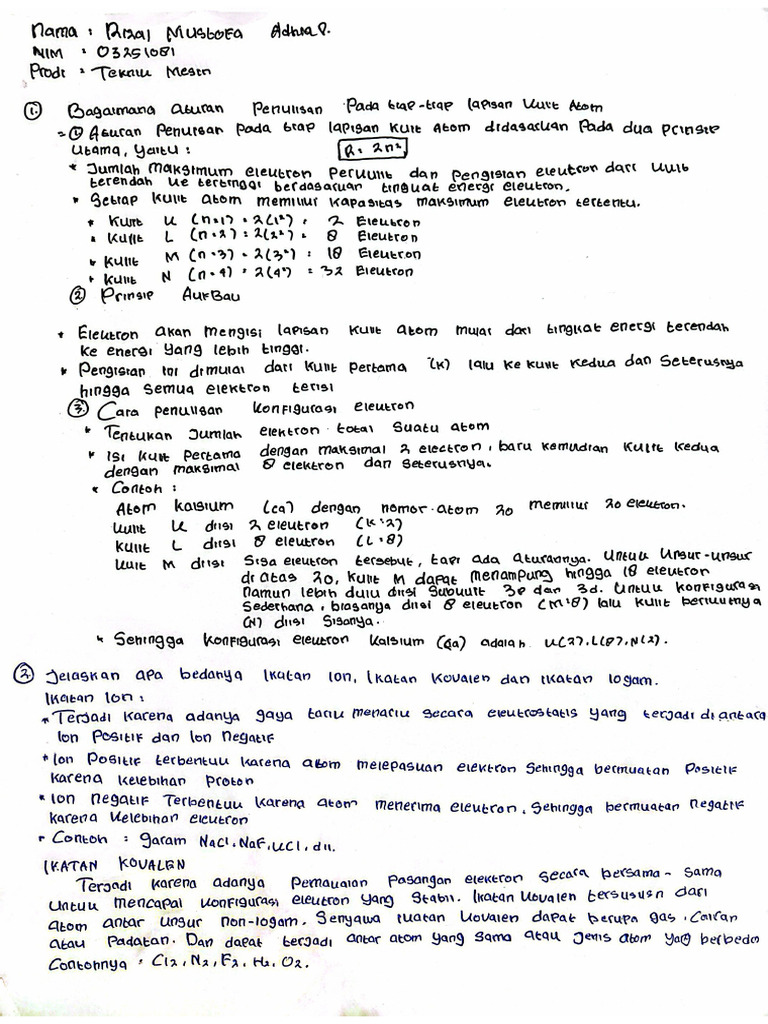 Nama : Rizal Mustofa Adhia P.
NIM : 03251081
Prodi : Teknik Mesin
1. Bagaimana aturan Penulisan Pada tiap-tiap lapisan kulit Atom
= ① Aturan Penulisan Pada tiap lapisan kulit Atom didasarkan Pada dua prinsip
Utama, yaitu : R = 2n²
* Jumlah maksimum elektron perkulit dan pengisian elektron dari kulit
terendah ke tertinggi berdasarkan tingkat energi elektron.
* Setiap kulit atom memiliki kapasitas maksimum elektron tertentu.
* Kulit K (n=1) = 2(1²) = 2 Elektron
* Kulit L (n=2) = 2(2²) = 8 Elektron
* Kulit M (n=3) = 2(3²) = 18 Elektron
* Kulit N (n=4) = 2(4²) = 32 Elektron
② Prinsip Aufbau
* Elektron akan mengisi lapisan kulit atom mulai dari tingkat energi terendah
ke energi yang lebih tinggi.
* Pengisian ini dimulai dari kulit pertama (K) lalu ke kulit kedua dan seterusnya
hingga semua elektron terisi
③ Cara penulisan konfigurasi elektron
* Tentukan Jumlah elektron total suatu atom
* Isi kulit pertama dengan maksimal 2 electron, baru kemudian kulit kedua
dengan maksimal 8 elektron dan seterusnya.
* Contoh :
Atom kalsium (ca) dengan nomor atom 20 memiliki 20 elektron.
kulit K diisi 2 elektron (K=2)
kulit L diisi 8 elektron (L=8)
kulit M diisi sisa elektron tersebut, tapi ada aturannya. Untuk Unsur-unsur
di atas 20, kulit M dapat menampung hingga 18 elektron
namun lebih dulu diisi subkulit 3p dan 3d. Untuk konfigurasi
sederhana, biasanya diisi 8 elektron (M=8) lalu kulit berikutnya
(N) diisi sisanya.
* Sehingga konfigurasi elektron kalsium (Ca) adalah K(2), L(8), N(2).
2. Jelaskan apa bedanya Ikatan Ion, Ikatan Kovalen dan Ikatan logam.
Ikatan Ion :
* Terjadi karena adanya gaya tarik menarik secara elektrostatis yang terjadi di antara
Ion Positif dan Ion Negatif
* Ion Positif terbentuk karena atom melepaskan elektron sehingga bermuatan Positif
karena kelebihan Proton
* Ion Negatif Terbentuk karena atom menerima elektron, sehingga bermuatan negatif
karena kelebihan elektron
* Contoh : garam NaCl, NaF, KCl, dll.
IKATAN KOVALEN
Terjadi karena adanya Pemakaian Pasangan elektron secara bersama-sama
Untuk mencapai konfigurasi elektron yang stabil. Ikatan kovalen tersusun dari
atom antar unsur non-logam. Senyawa ikatan kovalen dapat berupa gas, cairan
atau Padatan. Dan dapat terjadi antar atom yang sama atau Jenis atom yang berbeda
Contohnya = Cl2, N2, F2, H2, O2.